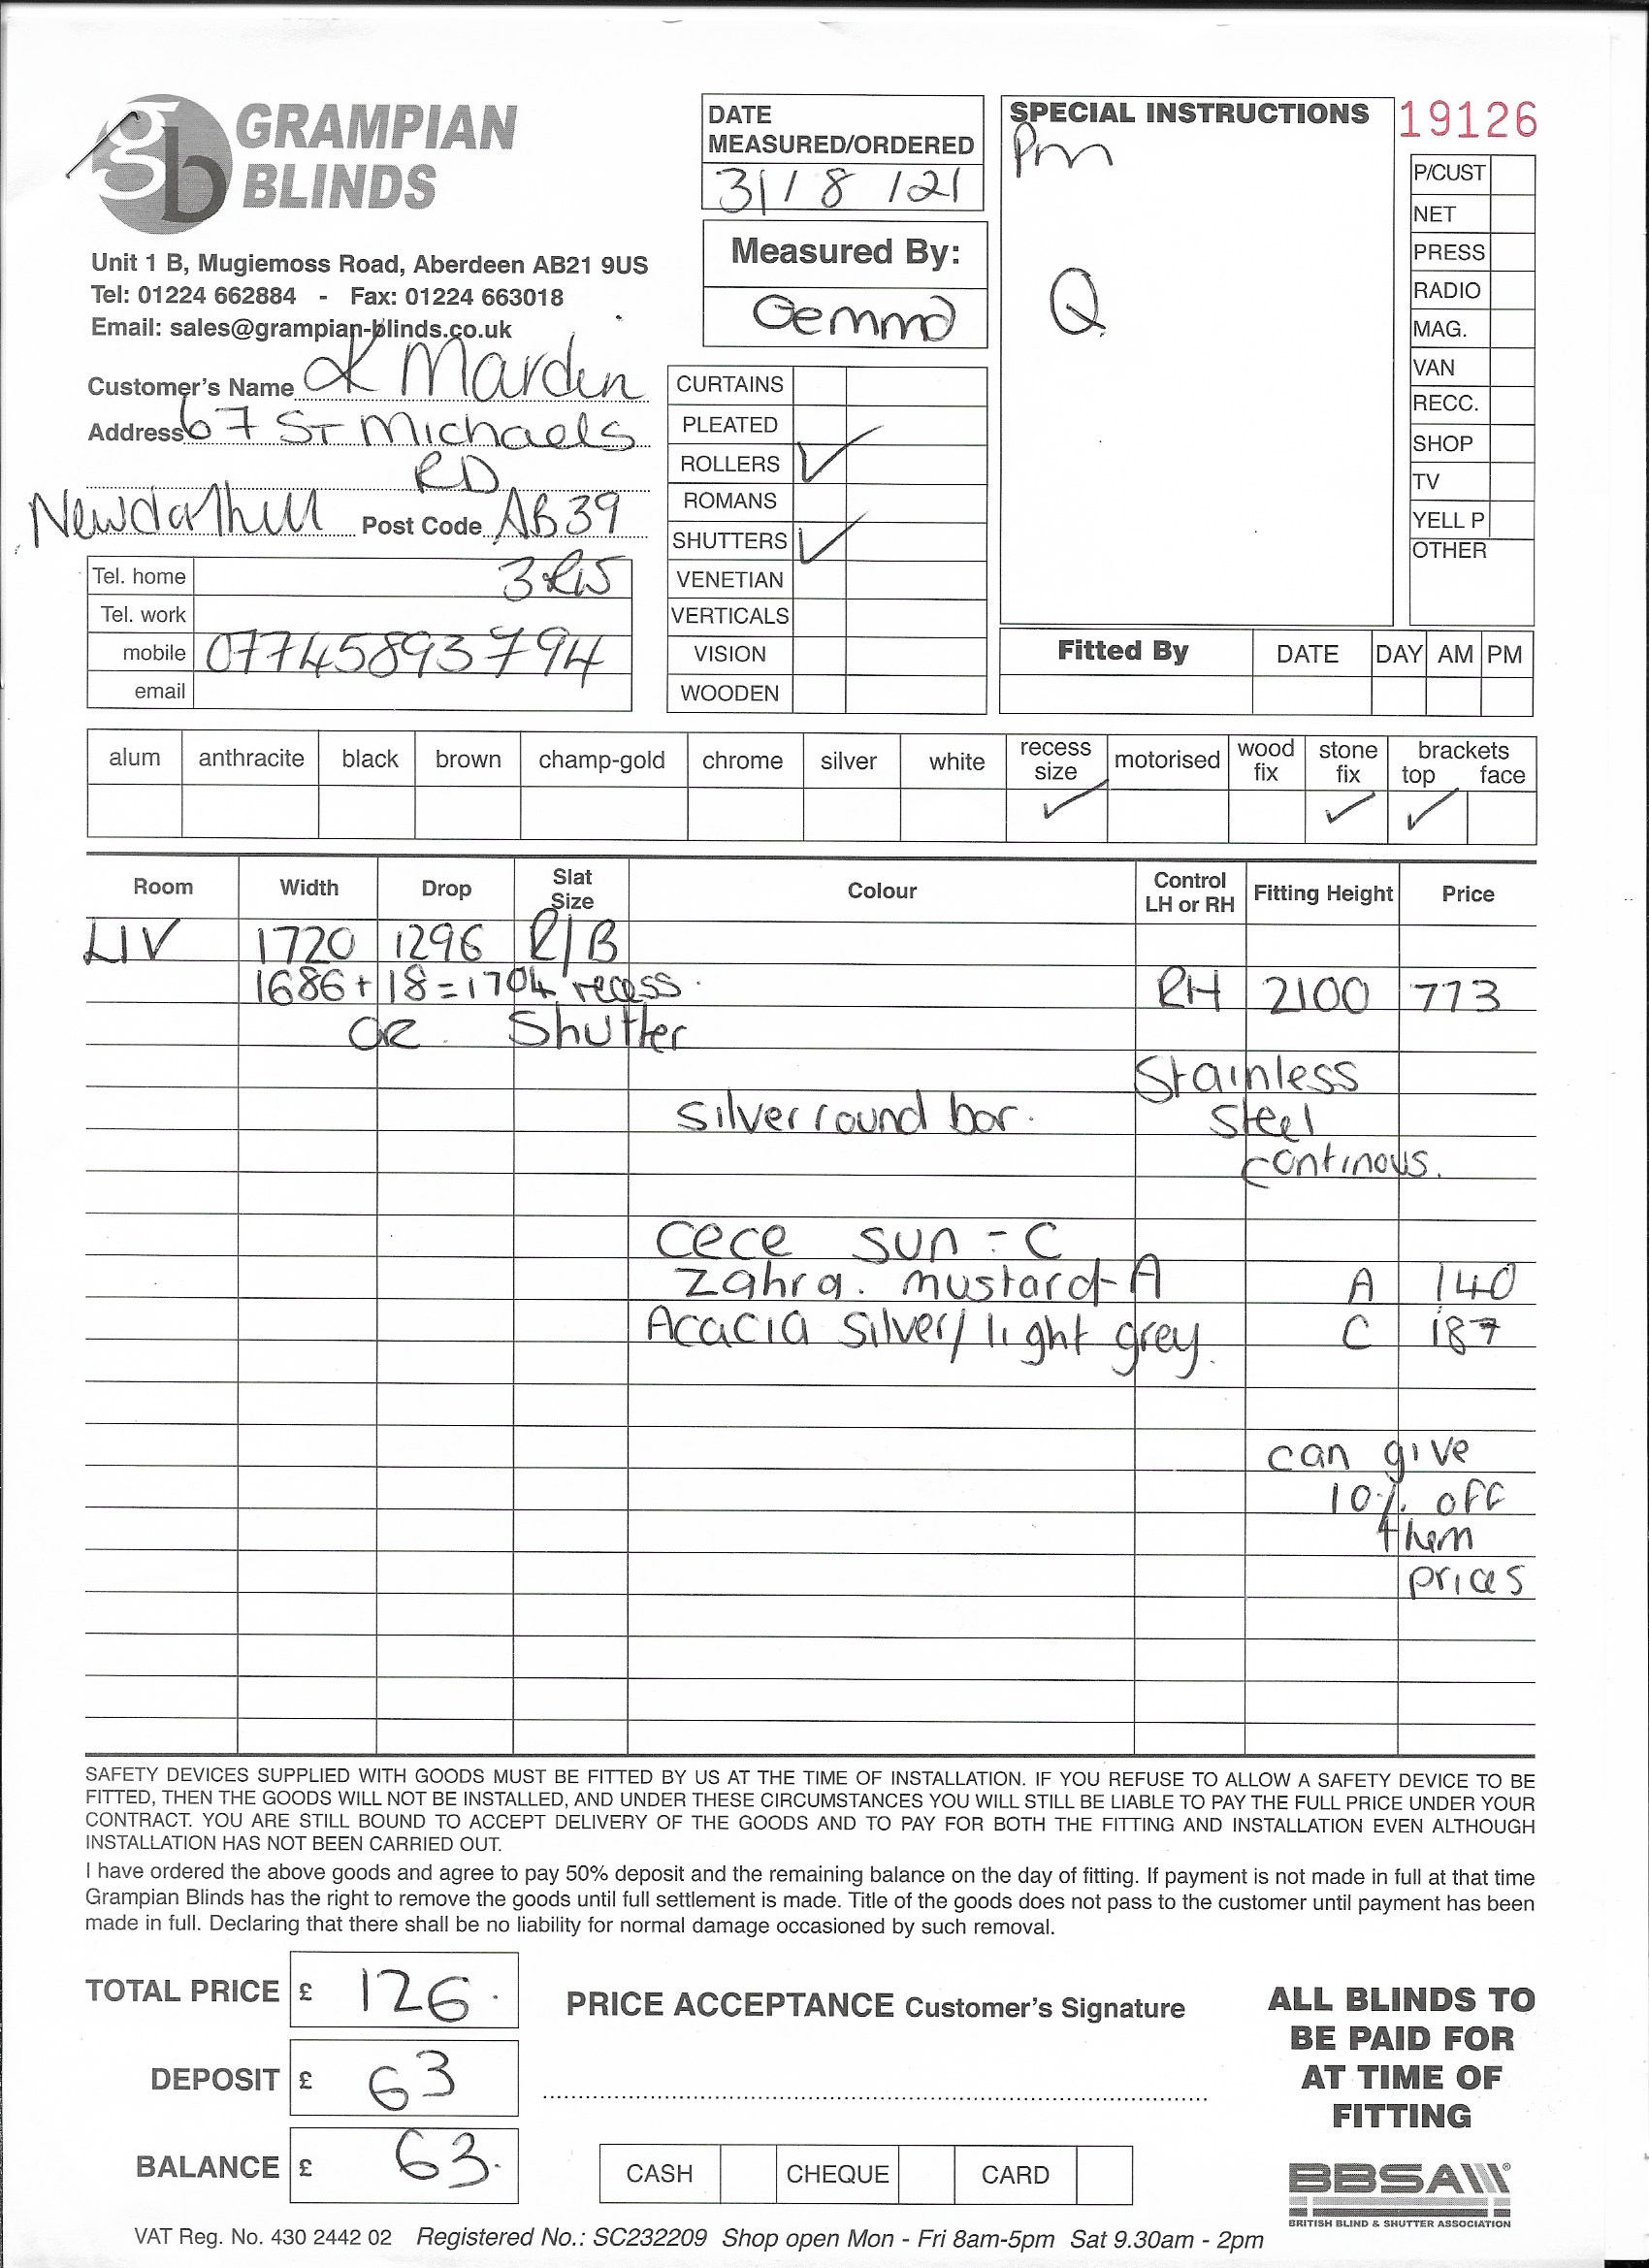 gb GRAMPIAN
BLINDS
Unit 1 B, Mugiemoss Road, Aberdeen AB21 9US
Tel: 01224 662884 - Fax: 01224 663018
Email: sales@grampian-blinds.co.uk
Customer's Name K Marden
Address 67 ST Michaels
RD
Newtonhill Post Code AB39
Tel. home 3RW
Tel. work
mobile 07745893794
email
DATE
MEASURED/ORDERED
31/8/21
Measured By:
Gemma
CURTAINS
PLEATED
ROLLERS ✓
ROMANS
SHUTTERS ✓
VENETIAN
VERTICALS
VISION
WOODEN
SPECIAL INSTRUCTIONS
Pm
Q
19126
P/CUST
NET
PRESS
RADIO
MAG.
VAN
RECC.
SHOP
TV
YELL P
OTHER
Fitted By DATE DAY AM PM
alum anthracite black brown champ-gold chrome silver white recess size motorised wood fix stone fix brackets top face
✓ ✓ ✓
Room Width Drop Slat Size Colour Control LH or RH Fitting Height Price
LIV 1720 1296 R/B
1686 + 18 = 1704 recess. RH 2100 773
OR Shutter
Stainless
silver round bar. steel
continous.
Cece sun - C
Zahra. mustard - A A 140
Acacia silver/light grey. C 187
can give
10% off
them
prices
SAFETY DEVICES SUPPLIED WITH GOODS MUST BE FITTED BY US AT THE TIME OF INSTALLATION. IF YOU REFUSE TO ALLOW A SAFETY DEVICE TO BE
FITTED, THEN THE GOODS WILL NOT BE INSTALLED, AND UNDER THESE CIRCUMSTANCES YOU WILL STILL BE LIABLE TO PAY THE FULL PRICE UNDER YOUR
CONTRACT. YOU ARE STILL BOUND TO ACCEPT DELIVERY OF THE GOODS AND TO PAY FOR BOTH THE FITTING AND INSTALLATION EVEN ALTHOUGH
INSTALLATION HAS NOT BEEN CARRIED OUT.
I have ordered the above goods and agree to pay 50% deposit and the remaining balance on the day of fitting. If payment is not made in full at that time
Grampian Blinds has the right to remove the goods until full settlement is made. Title of the goods does not pass to the customer until payment has been
made in full. Declaring that there shall be no liability for normal damage occasioned by such removal.
TOTAL PRICE £ 126.
DEPOSIT £ 63
BALANCE £ 63.
PRICE ACCEPTANCE Customer's Signature
CASH CHEQUE CARD
ALL BLINDS TO
BE PAID FOR
AT TIME OF
FITTING
BBSA
BRITISH BLIND & SHUTTER ASSOCIATION
VAT Reg. No. 430 2442 02 Registered No.: SC232209 Shop open Mon - Fri 8am-5pm Sat 9.30am - 2pm